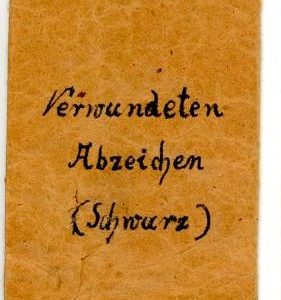 Verwundeten
Abzeichen
(Schwarz)